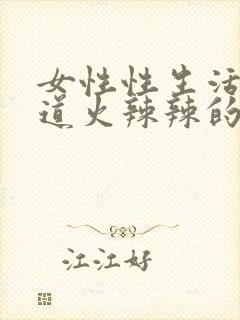 女性性生活
道火辣辣的
江江好